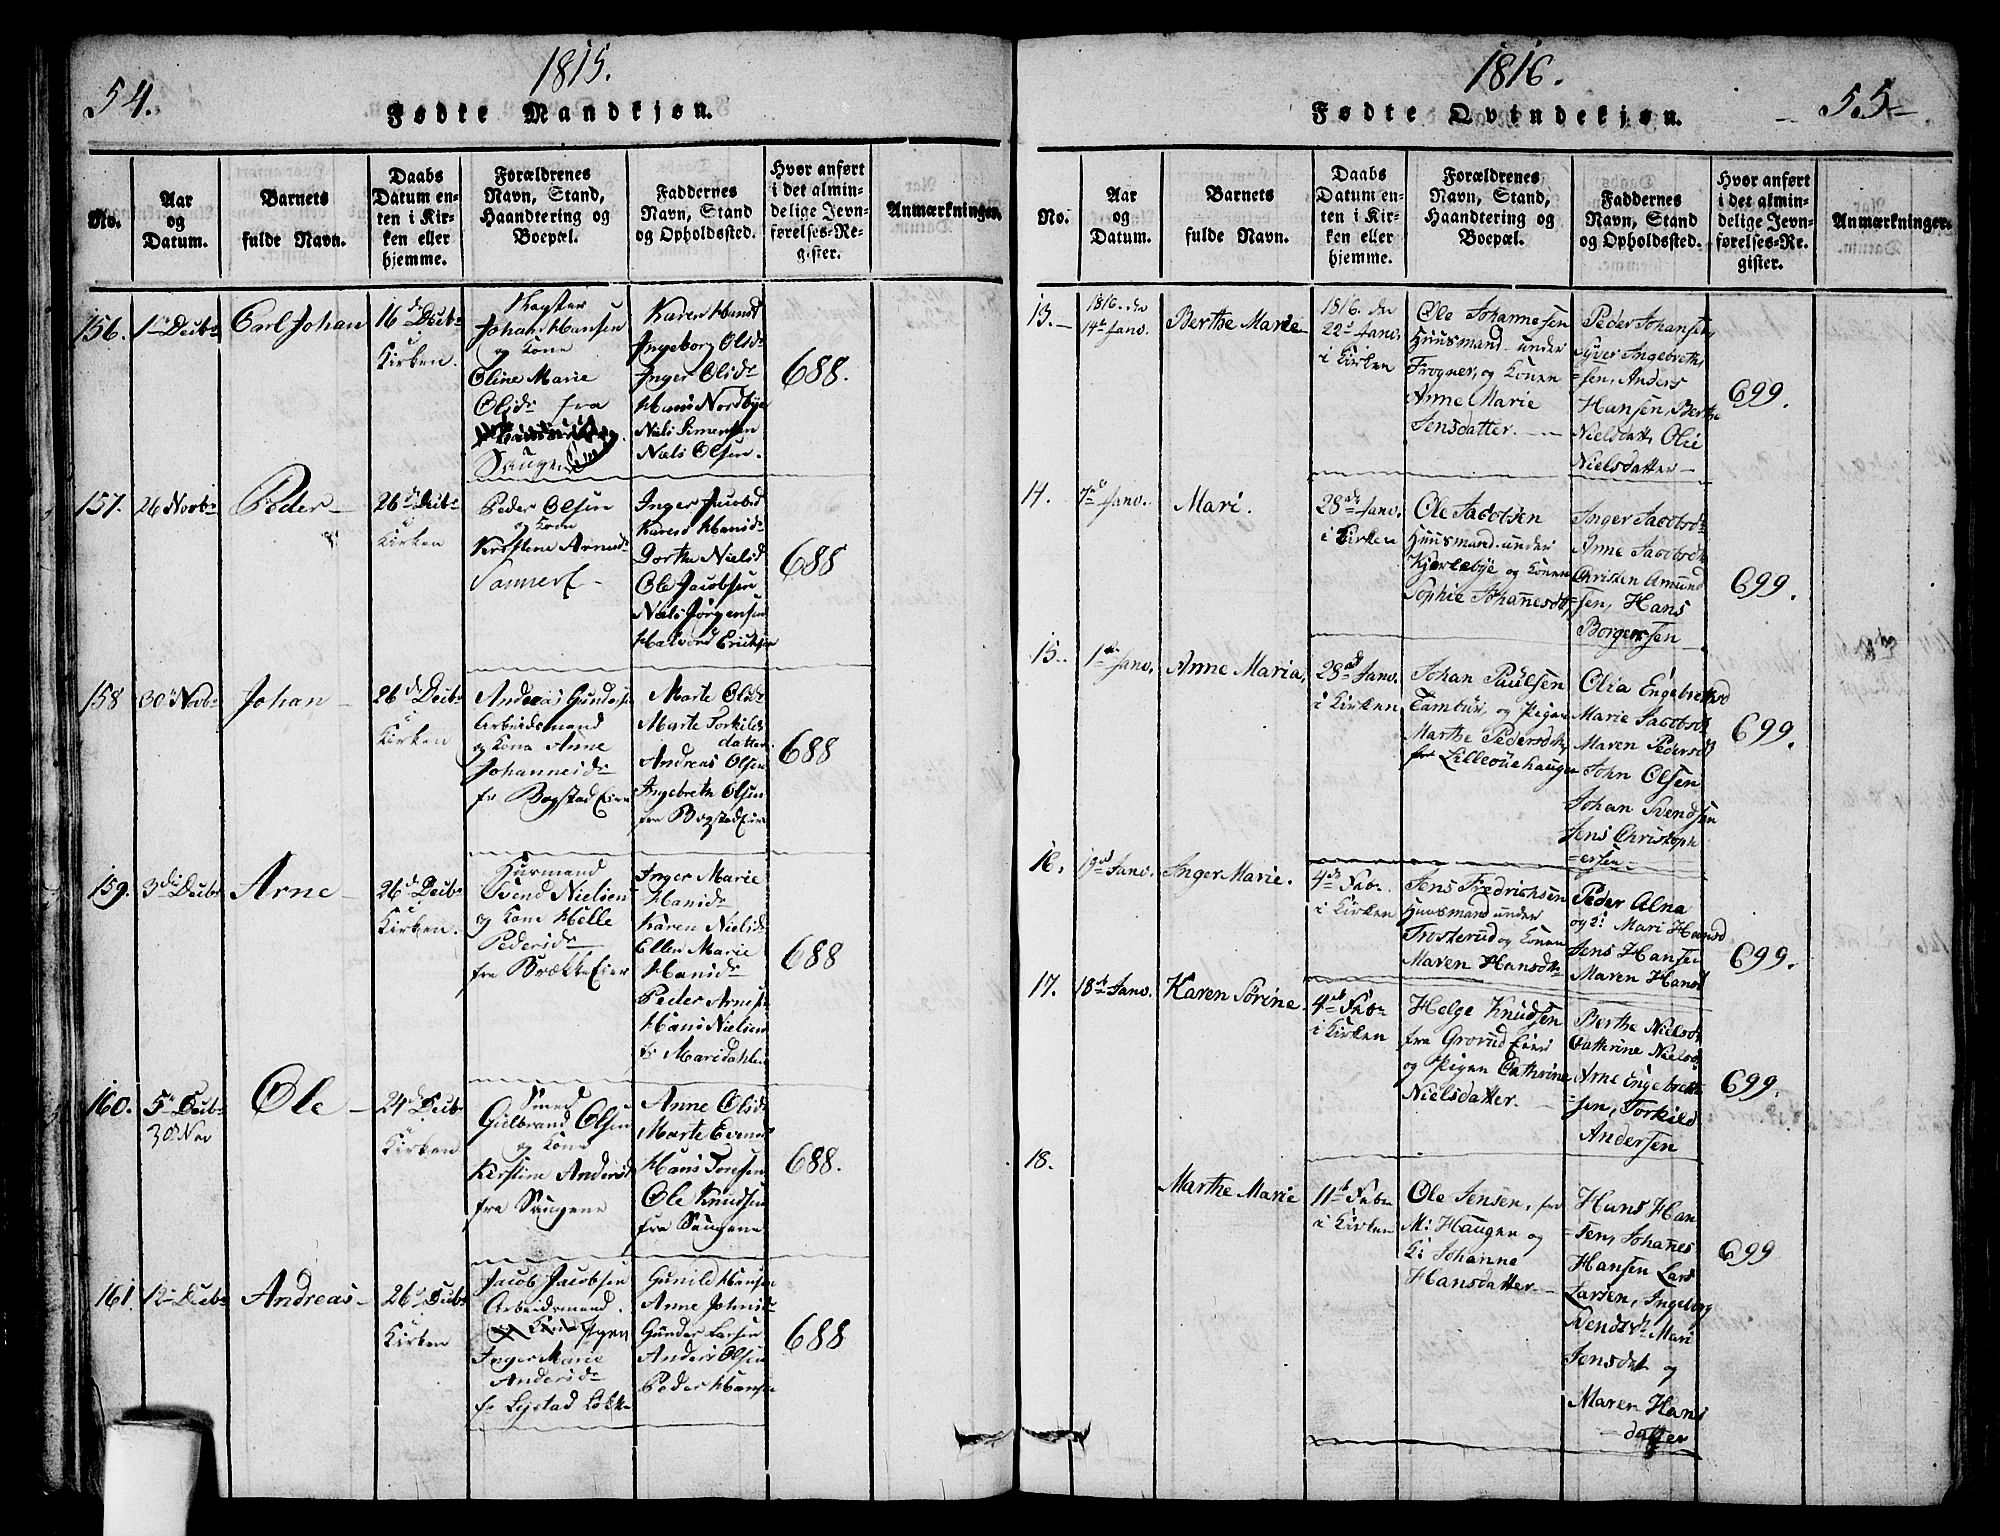 54.
1815.
Fødte Mandkjøn.
No.
Aar
og
Datum.
Barnets
fulde Navn.
Daabs
Datum en-
ten i Kir-
ken eller
hjemme.
Forældrenes
Navn, Stand,
Haandtering og
Boepæl.
Faddernes
Navn, Stand
og Opholdssted.
Hvor anført
i det almin-
delige Jevn-
førelses-Re-
gister.
Anmærkninger.
156.
Carl Johan
16 Decbr
Kirken.
Johan Hansen
og Kone
Oline Marie
Olsdr fra
Karen Hansd
Ingeborg Olsdr
Inger Olsdr
Hans Nordbye
Niels Simensen
Niels Olsen.
688.
157.
26 Novbr
Peder
26 Decbr
Kirken
Peder Olsen
og Kone
Kirstene Arnesdr
Inger Jacobsd
Karen Hansdr
Dorthe Nielsd
Ole Jacobsen
Niels Jörgensen
Halvord Ericksen
688
158
30 Novbr
Johan
26 Decbr
Kirken
Andreas Gundersen
Arbeidsmand
og Kone Anne
Johannesdr
fr Bogstad Eier
Marte Olsdr
Marte Torkilds
datter
Andreas Olsen
Ingebreth Olsen
fra Bogstad Eier
688
159.
3de Decbr
Arne
26 Decbr
Kirken.
Huusmand
Svend Nielsen
og Kone Helle
Pedersdr
fra Brække Eier
Inger Marie
Hansdr
Karen Nielsdr
Ellen Marie
Hansdr
Peder Arnesen
Hans Nielsen
fr Maridahlen
688
160.
5 Decbr
30 Nov
Ole
24 Decbr
Kirken
Smed
Gulbrand Olsen
og Kone
Kirstine Andersd
fra Saugene
Anne Olsdr
Marte Evensd
Hans Torresen
Ole Knudsen
fra Saugene
688.
161
12 Decbr
Andreas
26 Decbr
Kirken
Jacob Jacobsen
Arbeidsmand.
Inger Marie
Andersdr
Gunild Hansen
Anne Johnsdr
Gunder Larsen
Anders Olsen
Peder Hansen
688
1816.
55
Fødte Qvindekjøn.
No.
Aar
og
Datum.
Barnets
fulde Navn.
Daabs
Datum en-
ten i Kir-
ken eller
hjemme.
Forældrenes
Navn, Stand,
Haandtering og
Boepæl.
Faddernes
Navn, Stand
og Opholdssted.
Hvor anført
i det almin-
delige Jevn-
førelses-Re-
gister.
Anmærkninger.
13.
1816. den
14de Janv.
Berthe Marie
1816. den
22d Janv.
i Kirken
Ole Johannesen
Huusmand under
Frogner, og Konen
Anne Marie
Jensdatter.
Peder Johansen,
Syver Ingebreth
=sen, Anders
Hansen, Berthe
Nielsdatt, Olie
Nielsdatter
699.
14.
7de Janv.
Mari
28de Janv.
i Kirken
Ole Jacobsen
Huusmand under
Kjerlebye og Konen
Sophie Johannesdtr
Inger Jacobsdr
Anne Jacobsdr
Christen Amund
=sen, Hans
Borgersen
699.
15.
1ste Janv.
Anne Maria,
28de Janv.
i Kirken
Johan Paulsen
Tambur, og Pigen
Marthe Pedersdtr,
fr Lilleouehaugen
Olia Engebrethsd
Marie Jacobsdr
Maren Pedersdr
John Olsen
Johan Svendsen
Jens Christoph
=ersen
699.
16.
19de Janv.
Inger Marie.
4de Febr.
i Kirken
Jens Fredrichsen
Huusmand under
Trosterud og Konen
Maren Hansdtr
Peder Alna
og K: Mari Hansd
Jens Hansen
Maren Hansd
699.
17.
18de Janv.
Karen Sörine
4de Febr
i Kirken
Helge Knudsen
fra Grorud Eier
og Pigen Cathrine
Nielsdatter.
Berthe Nielsdr
Cathrine Nielsdr
Arne Engebreth
=sen, Torkild
Andersen
699.
18.
Marthe Marie
11te Febr
i Kirken
Ole Jensen, fra
M: Haugen og
K: Johanne
Hansdatter
Hans Han
=sen, Johanes
Hansen Lars
Larsen, Ingeborg
Svendsdr Mari
Jensdat og
Maren Hans
datter
699